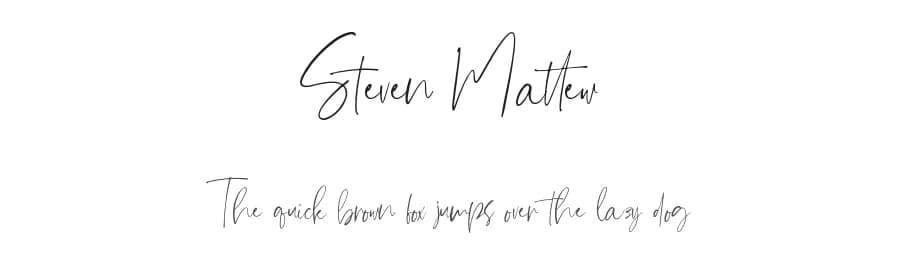 Steven Mattew
The quick brown fox jumps over the lazy dog